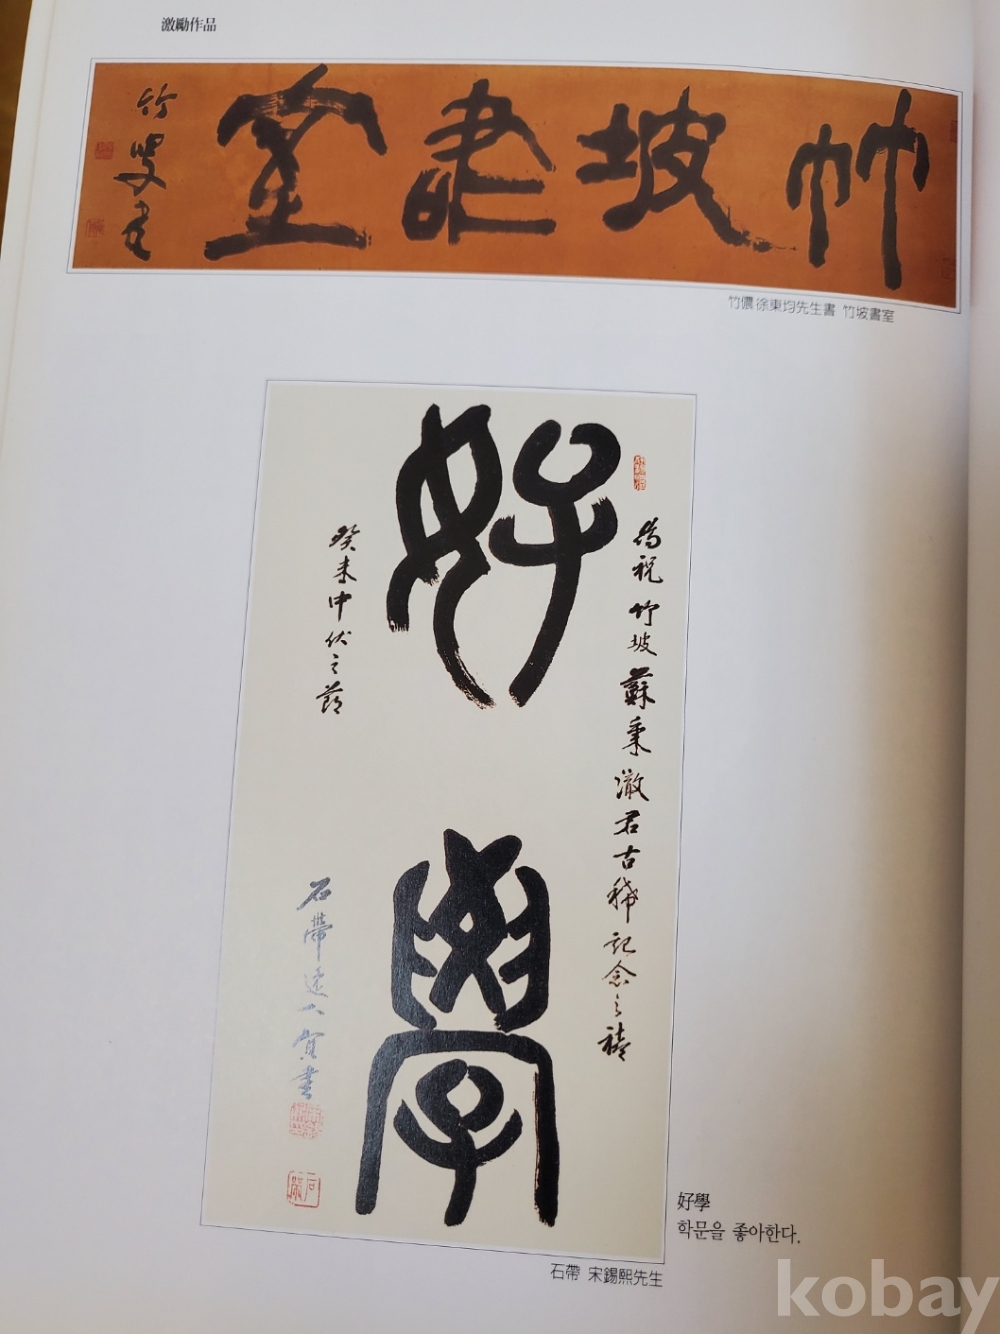 激勵作品
竹坡書室
竹叟書
竹儂 徐東均先生書 竹坡書室
好學
為祝竹坡蘇秉澈君古稀記念之禧
癸未中伏之節
石帶
書
好學
학문을 좋아한다.
石帶 宋錫熙先生
kobay